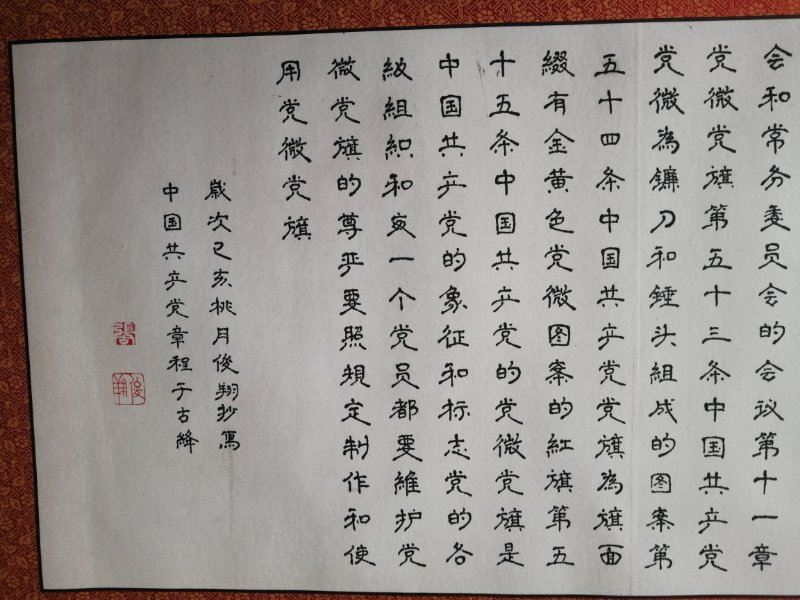 会和常务委员会的会议第十一章
党微党旗第五十三条中国共产党
党微為鐮刀和锤头組成的图案第
五十四条中国共产党党旗為旗面
綴有金黄色党微图案的紅旗第五
十五条中国共产党的党微党旗是
中国共产党的象征和标志党的各
級組織和每一个党员都要維护党
微党旗的尊严要照规定制作和使
用党微党旗
歲次己亥桃月俊翔抄寫
中国共产党章程于古絳